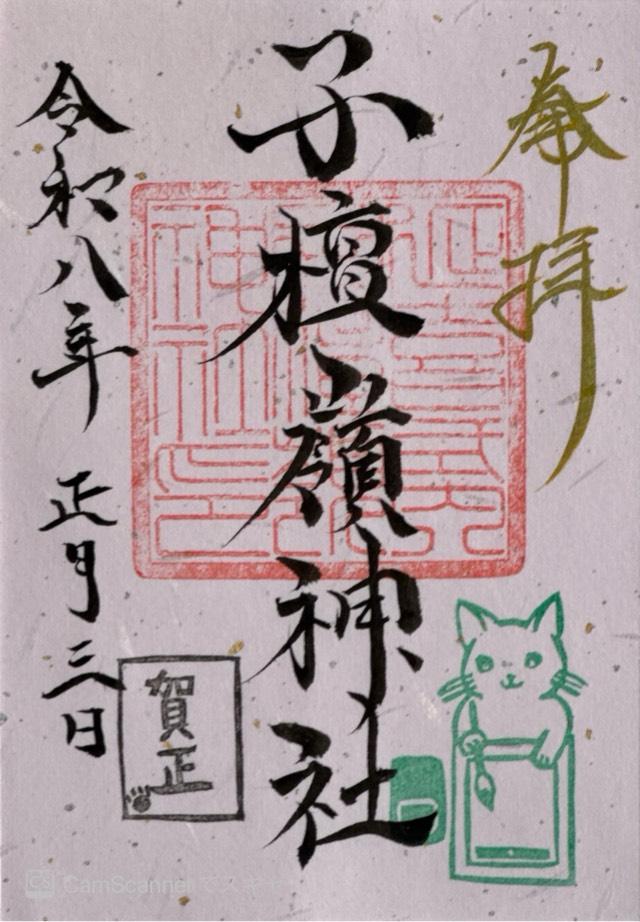 奉拝
子檀嶺神社
令和八年 正月三日
賀正
CamScannerでスキャン